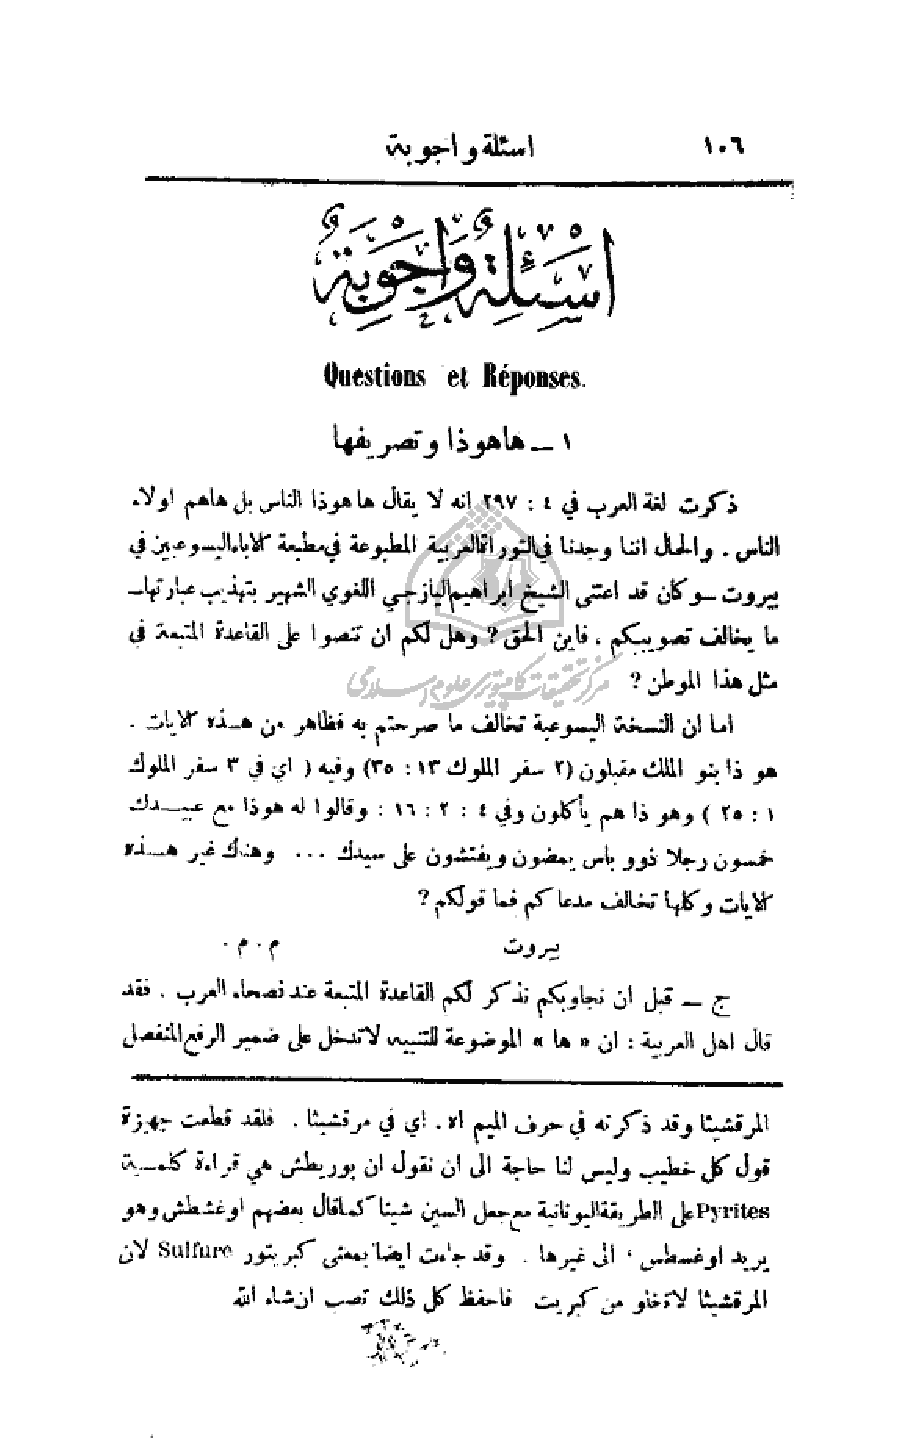 ١٠٦ اسئلة واجوبة
اَسْئِلَةٌ وَاَجْوِبَةٌ
Questions et Réponses.
١ ــ هاهوذا وتصريفها
ذكرت لغة العرب في ٤ : ٢٩٧ انه لا يقال هاهوذا الناس بل هاهم اولاء
الناس . والحال اننا وجدنا في التوراة العربية المطبوعة في مطبعة الآباء اليسوعيين في
بيروت ــ وكان قد اعتنى الشيخ ابراهيم اليازجي اللغوي الشهير بتهذيب عبارتها ــ
ما يخالف تصويبكم . فاين الحق ؟ وهل لكم ان تنصوا على القاعدة المتبعة في
مثل هذا الموطن ؟
مركز تحقيقات كامپيوتری علوم اسلامی
اما ان النسخة اليسوعية تخالف ما صرحتم به فظاهر من هذه الآيات .
هو ذا بنو الملك مقبلون (٢ سفر الملوك ١٣ : ٣٥) وفيه ( اي في ٣ سفر الملوك
١ : ٢٥ ) وهو ذا هم يأكلون وفي ٤ : ٢ : ١٦ : وقالوا له هوذا مع عبيدك
خمسون رجلا ذوو باس يمضون ويفتشون على سيدك ... وهناك غير هذه
الآيات وكلها تخالف مدعاكم فما قولكم ؟
بيروت م . م .
ج ــ قبل ان نجاوبكم نذكر لكم القاعدة المتبعة عند فصحاء العرب . فقد
قال اهل العربية : ان « ها » الموضوعة للتنبيه لا تدخل على ضمير الرفع المنفصل
المرقشيثا وقد ذكرته في حرف الميم اه . اي في مرقشيثا . فلقد قطعت جهيزة
قول كل خطيب وليس لنا حاجة الى ان نقول ان بوريطش هي قراءة كلمة
Pyrites على الطريقة اليونانية مع جعل السين شينا كما قال بعضهم اوغشطش وهو
يريد اوغسطس ، الى غيرها . وقد جاءت ايضا بمعنى كبريتور Sulfure لان
المرقشيثا لا تخلو من كبريت فاحفظ كل ذلك تصب ان شاء الله